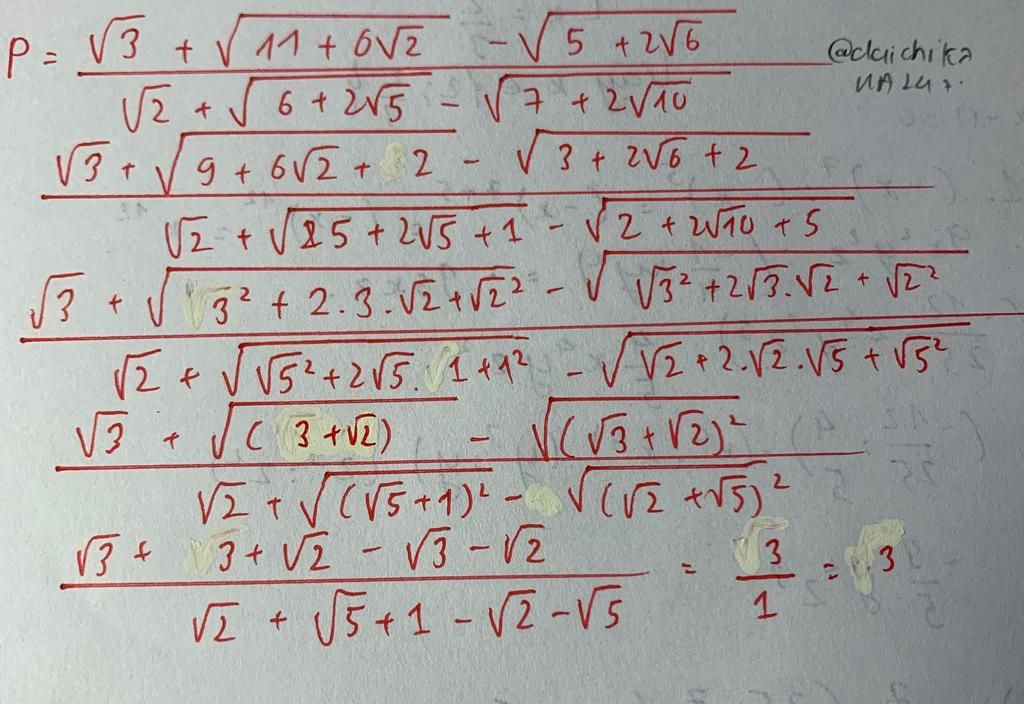 P = √3 + √11 + 6√2 - √5 + 2√6
√2 + √6 + 2√5 - √7 + 2√10
√3 + √9 + 6√2 + 2 - √3 + 2√6 + 2
√2 + √5 + 2√5 + 1 - √2 + 2√10 + 5
√3 + √3² + 2.3.√2 + √2² - √√3² + 2√3.√2 + √2²
√2 + √√5² + 2√5.1 + 1² - √√2 + 2.√2.√5 + √5²
√3 + √(3+√2) - √(√3 + √2)²
√2 + √(√5+1)² - √(√2 + √5)²
√3 + 3 + √2 - √3 - √2 = 3 = 3
√2 + √5 + 1 - √2 - √5 1